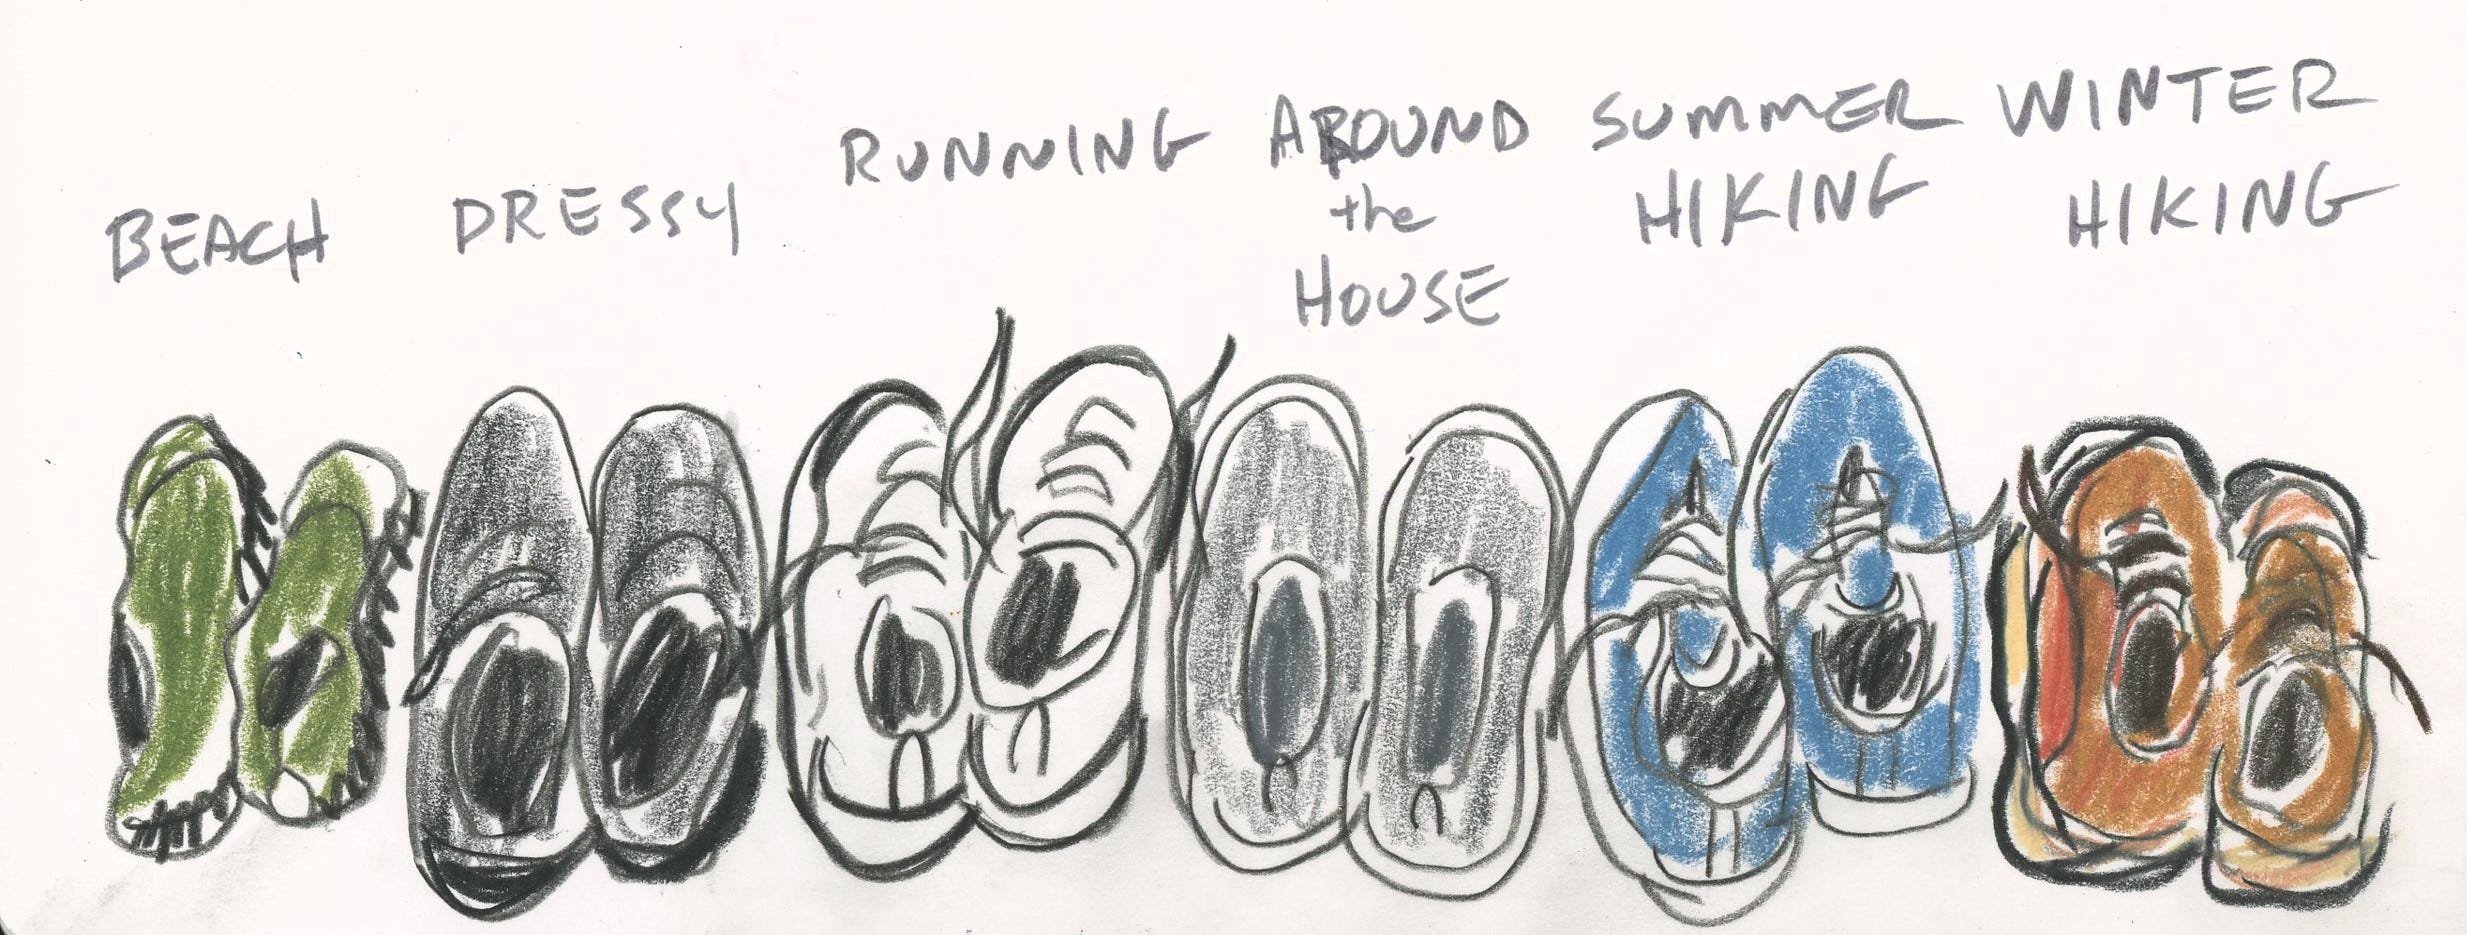 BEACH
DRESSY
RUNNING
AROUND
the
HOUSE
SUMMER
HIKING
WINTER
HIKING